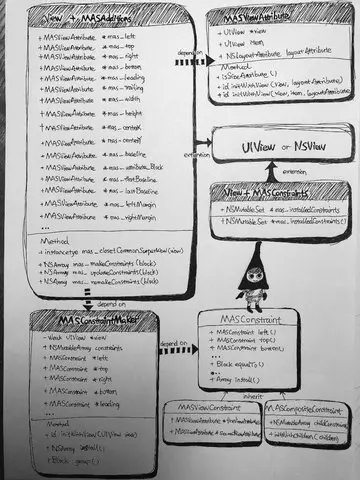 View + MASAdditions
+ MASViewAttribute * mas_left
+ MASViewAttribute * mas_top
+ MASViewAttribute * mas_right
+ MASViewAttribute * mas_bottom
+ MASViewAttribute * mas_leading
+ MASViewAttribute * mas_trailing
+ MASViewAttribute * mas_width
+ MASViewAttribute * mas_height
+ MASViewAttribute * mas_centerX
+ MASViewAttribute * mas_centerY
+ MASViewAttribute * mas_baseline
+ MASViewAttribute * mas_attribute_Block
+ MASViewAttribute * mas_firstBaseline
+ MASViewAttribute * mas_lastBaseline
+ MASViewAttribute * mas_leftMargin
+ MASViewAttribute * mas_rightMargin
...
Method
+ instancetype mas_closestCommonSuperView(view)
+ NSArray mas_makeConstraints (block)
+ NSArray mas_updateConstraints (block)
+ NSArray mas_remakeConstraints (block)
depend on
MASViewAttribute
+ UIView *view
+ UIView item
+ NSLayoutAttribute layoutAttribute
Method
+ isSizeAttribute ()
+ id initWithView (View, layoutAttribute)
+ id initWithView (View, item, layoutAttribute)
extention
UIView or NSView
extention
View + MASConstraints
+ NSMutableSet * mas_installedConstraints
+ NSMutableSet * mas_installedConstraints()
depend on
MASConstraintMaker
- Weak UIView *view
- NSMutableArray constraints
+ MASConstraint * left
+ MASConstraint * top
+ MASConstraint * right
+ MASConstraint * bottom
+ MASConstraint * leading
...
Method
+ id initWithView (UIView view)
+ NSArray install()
+ Block group()
depend on
MASConstraint
+ MASConstraint left ()
+ MASConstraint top ()
+ MASConstraint bottom()
...
+ Block equalTo ()
...
+ Array install()
inherit
MASViewConstraint
+ MASViewAttribute * firstViewAttribute
+ MASViewAttribute * secondViewAttribute
MASCompositeConstraint
+ NSMutableArray childConstraints
+ initWithChildren (children)